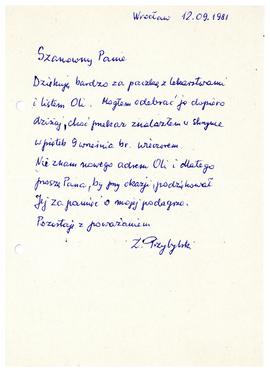 Wrocław 12.09.1981
Szanowny Panie
Dziękuję bardzo za paczkę z lekarstwami
i listem Oli. Mogłem odebrać ją dopiero
dzisiaj, choć przekaz znalazłem w skrzynce
w piątek 9 września br. wieczorem.
Nie znam nowego adresu Oli i dlatego
proszę Pana, by przy okazji, podziękował
Jej za pamięć o mojej podagrze.
Pozostaję z poważaniem
Z. Przybylski